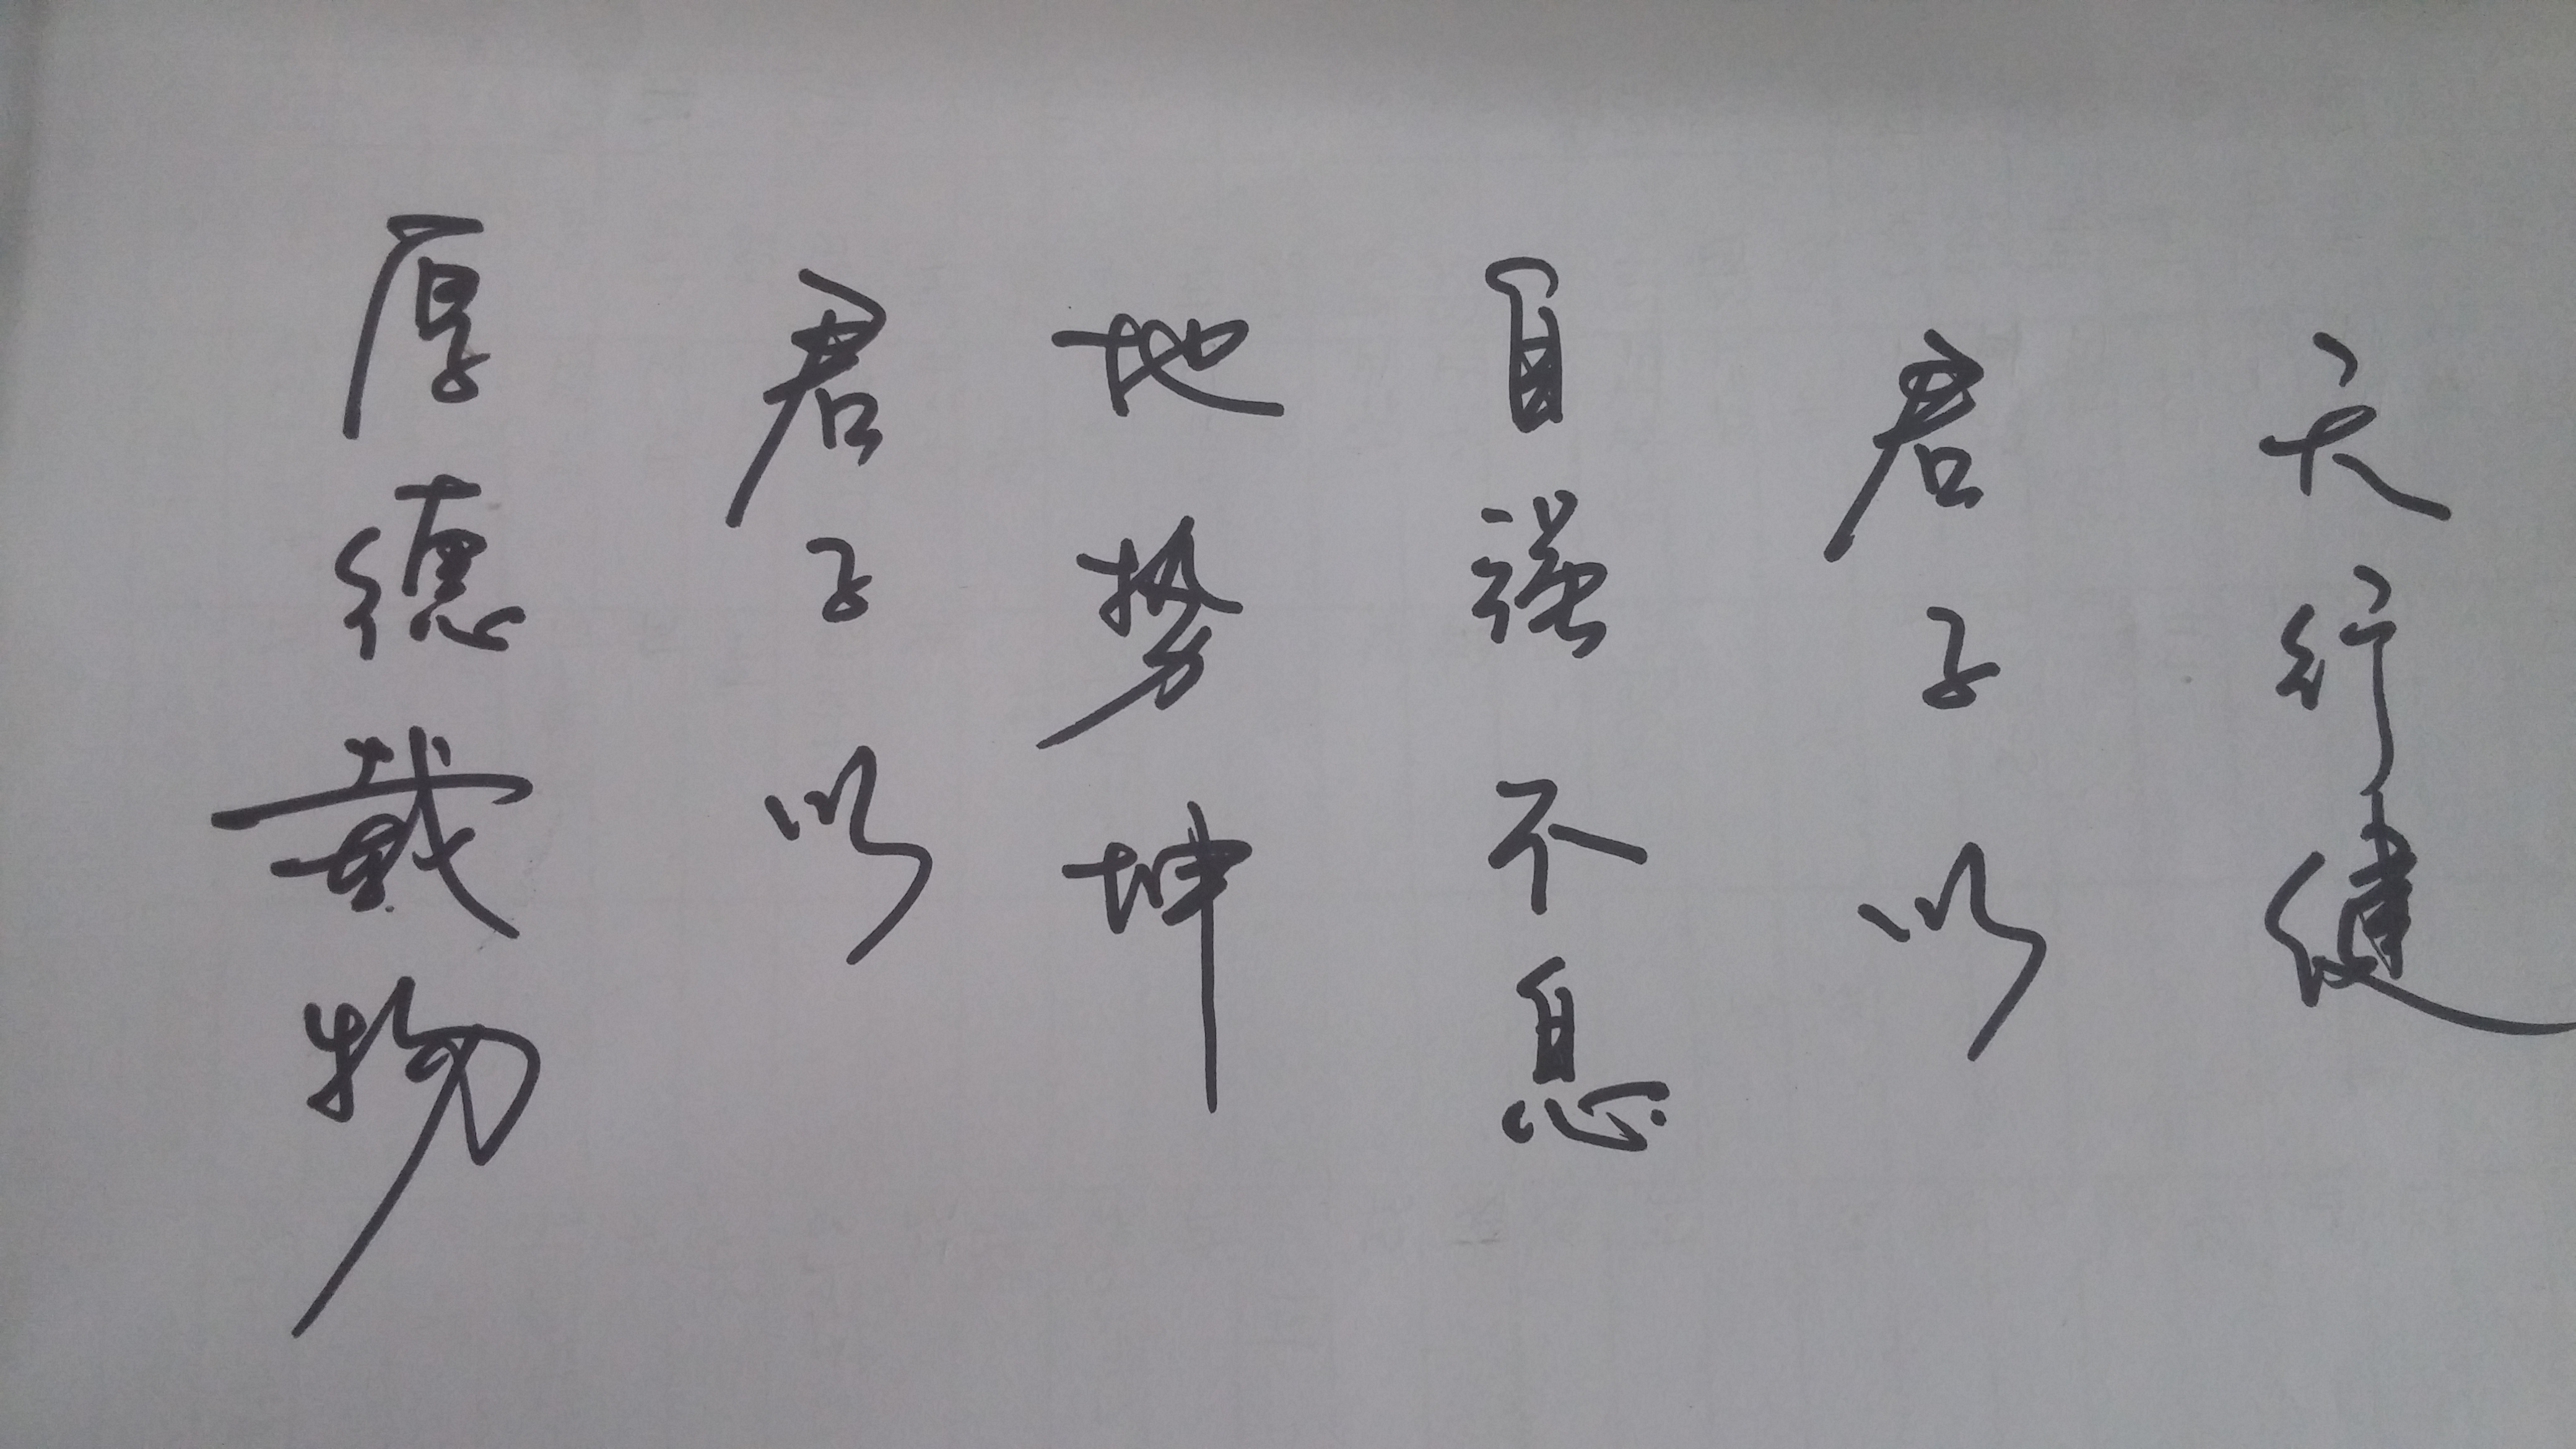 天行健
君子以
自强不息
地势坤
君子以
厚德载物